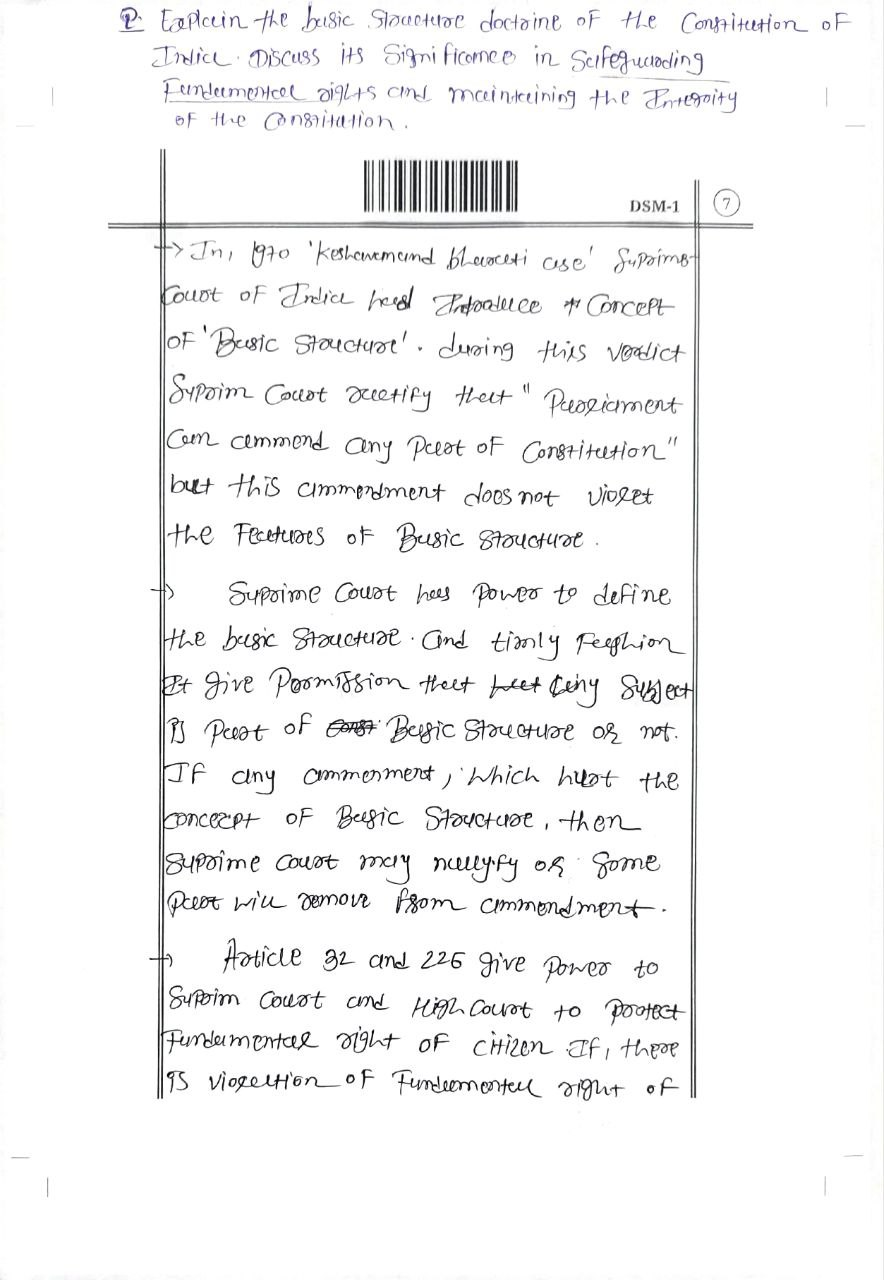 Q. Explain the basic Structure doctrine of the Constitution of
India. Discuss its Significance in Safeguarding
Fundamental rights and maintaining the Integrity
of the Constitution.
DSM-1 7
→ In, 1970 'Keshavanand bharati case' Suprime
Court of India head Introduce Concept
of 'Basic Structure'. during this verdict
Suprim Court ractify that " Parliament
Can ammend any Part of Constitution"
but this ammendment does not violet
the Features of Basic Structure.
→ Suprime Court has Power to define
the basic Structure. and timly
It give Permission that any Subject
is Part of Basic Structure or not.
If any ammenment, which hurt the
concept of Basic Structure, then
suprime court may nullyfy or Some
Part will remove from ammendment.
→ Article 32 and 226 give Power to
Suprim Court and High Court to protect
Fundamental right of citizen If, there
is violation of Fundamental right of